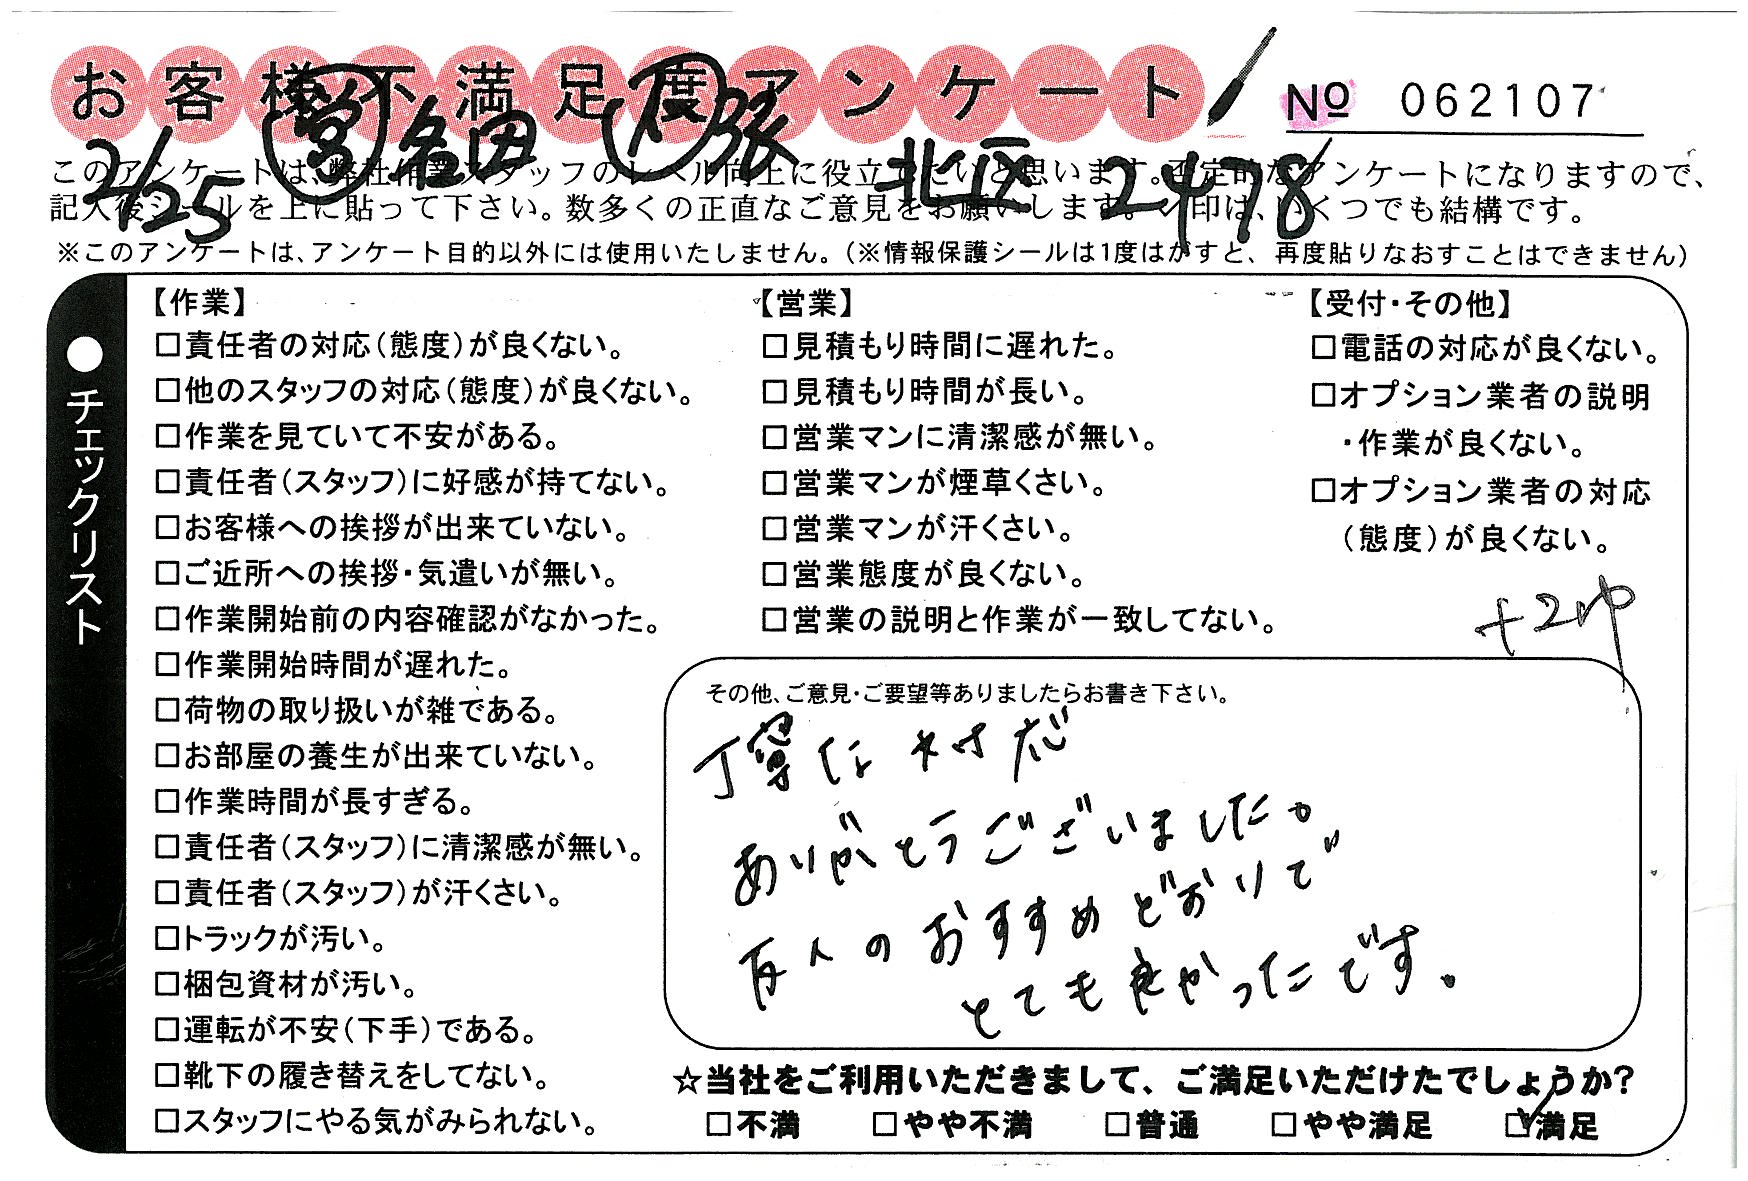 お客様不満足度アンケート
№ 062107
2/25 営 名田 張 北区 2478
このアンケートは、弊社作業スタッフのレベル向上に役立てたいと思います。否定的なアンケートになりますので、
記入後シールを上に貼って下さい。数多くの正直なご意見をお願いします。レ印は、いくつでも結構です。
※このアンケートは、アンケート目的以外には使用いたしません。(※情報保護シールは1度はがすと、再度貼りなおすことはできません)
●チェックリスト
【作業】
□責任者の対応(態度)が良くない。
□他のスタッフの対応(態度)が良くない。
□作業を見ていて不安がある。
□責任者(スタッフ)に好感が持てない。
□お客様への挨拶が出来ていない。
□ご近所への挨拶・気遣いが無い。
□作業開始前の内容確認がなかった。
□作業開始時間が遅れた。
□荷物の取り扱いが雑である。
□お部屋の養生が出来ていない。
□作業時間が長すぎる。
□責任者(スタッフ)に清潔感が無い。
□責任者(スタッフ)が汗くさい。
□トラックが汚い。
□梱包資材が汚い。
□運転が不安(下手)である。
□靴下の履き替えをしてない。
□スタッフにやる気がみられない。
【営業】
□見積もり時間に遅れた。
□見積もり時間が長い。
□営業マンに清潔感が無い。
□営業マンが煙草くさい。
□営業マンが汗くさい。
□営業態度が良くない。
□営業の説明と作業が一致してない。
【受付・その他】
□電話の対応が良くない。
□オプション業者の説明
・作業が良くない。
□オプション業者の対応
(態度)が良くない。
その他、ご意見・ご要望等ありましたらお書き下さい。
丁寧な対応
ありがとうございました。
友人のおすすめどおりで
とても良かったです。
☆当社をご利用いただきまして、ご満足いただけたでしょうか?
□不満 □やや不満 □普通 □やや満足 ☑満足